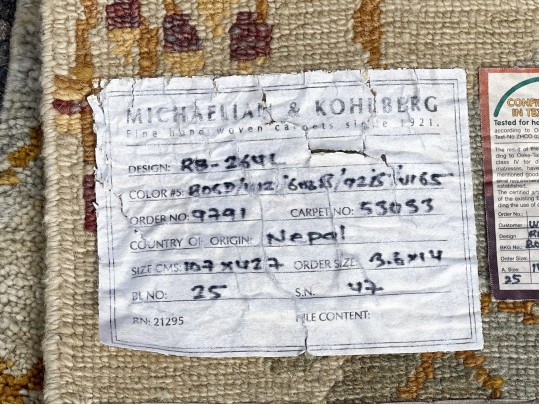 MICHAELIAN & KOHLBERG
Fine hand woven carpets since 1921.
DESIGN: RB-264L
COLOR #S:
ORDER NO: 9791 CARPET NO: 53053
COUNTRY OF ORIGIN: Nepal
SIZE CMS: 107 x 427 ORDER SIZE: 3.6 x 14
BL NO: 25 S.N. 47
RN: 21295 PILE CONTENT:
CONFI
IN TEX
Tested for ha
according to Oeko
Test-No ZHCO
The result of the
ding to Oeko-Te
class IV for de
mattresses, have
mentioned good
established.
The certified art
of the existing
ding the use of
Order No.:
Customer
Design
BKG No.:
Order Size:
A. Size
25